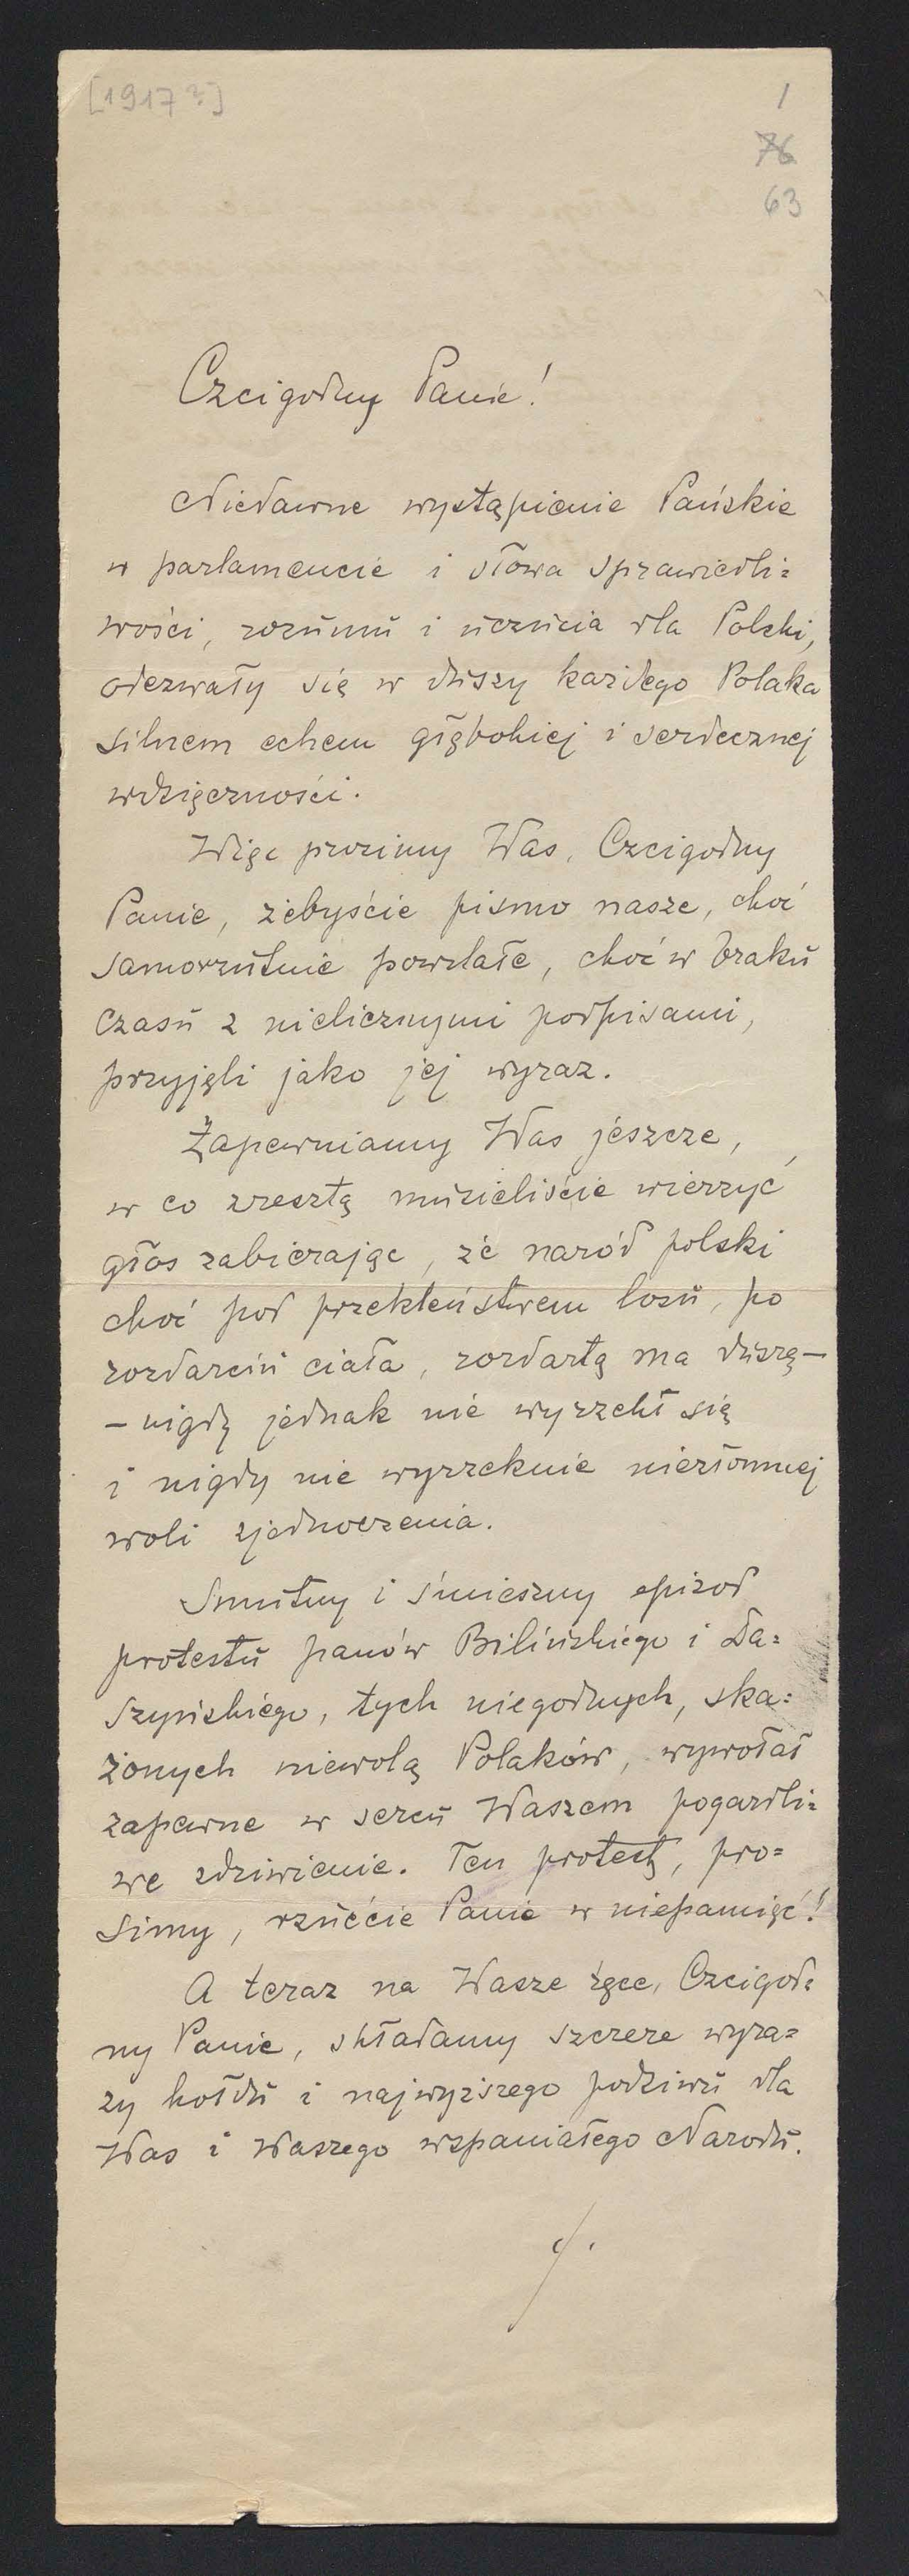 [1917?]
1
76
63
Czcigodny Panie!
Niedawne wystąpienie Pańskie
w parlamencie i słowa sprawiedli=
wości, rozumu i uczucia dla Polski,
odezwały się w duszy każdego Polaka
silnem echem głębokiej i serdecznej
wdzięczności.
Więc prosimy Was, Czcigodny
Panie, żebyście pismo nasze, choć
samorzutnie powstałe, choć w braku
czasu z nielicznymi podpisami,
przyjęli jako jej wyraz.
Zapewniamy Was jeszcze,
w co zresztą musieliście wierzyć
głos zabierając, że naród polski
choć pod przekleństwem losu, po
rozdarciu ciała, rozdartą ma duszę—
— nigdy jednak nie wyrzekł się
i nigdy nie wyrzeknie niezłomnej
woli zjednoczenia.
Smutny i śmieszny epizod
protestu panów Bilińskiego i Da=
szyńskiego, tych niegodnych, ska=
żonych niewolą Polaków, wywołał
zapewne w sercu Waszem pogardli=
we zdziwienie. Ten protest, pro=
simy, rzućcie Panie w niepamięć!
A teraz na Wasze ręce, Czcigod=
ny Panie, składamy szczere wyra=
zy hołdu i najwyższego podziwu dla
Was i Waszego wspaniałego Narodu.